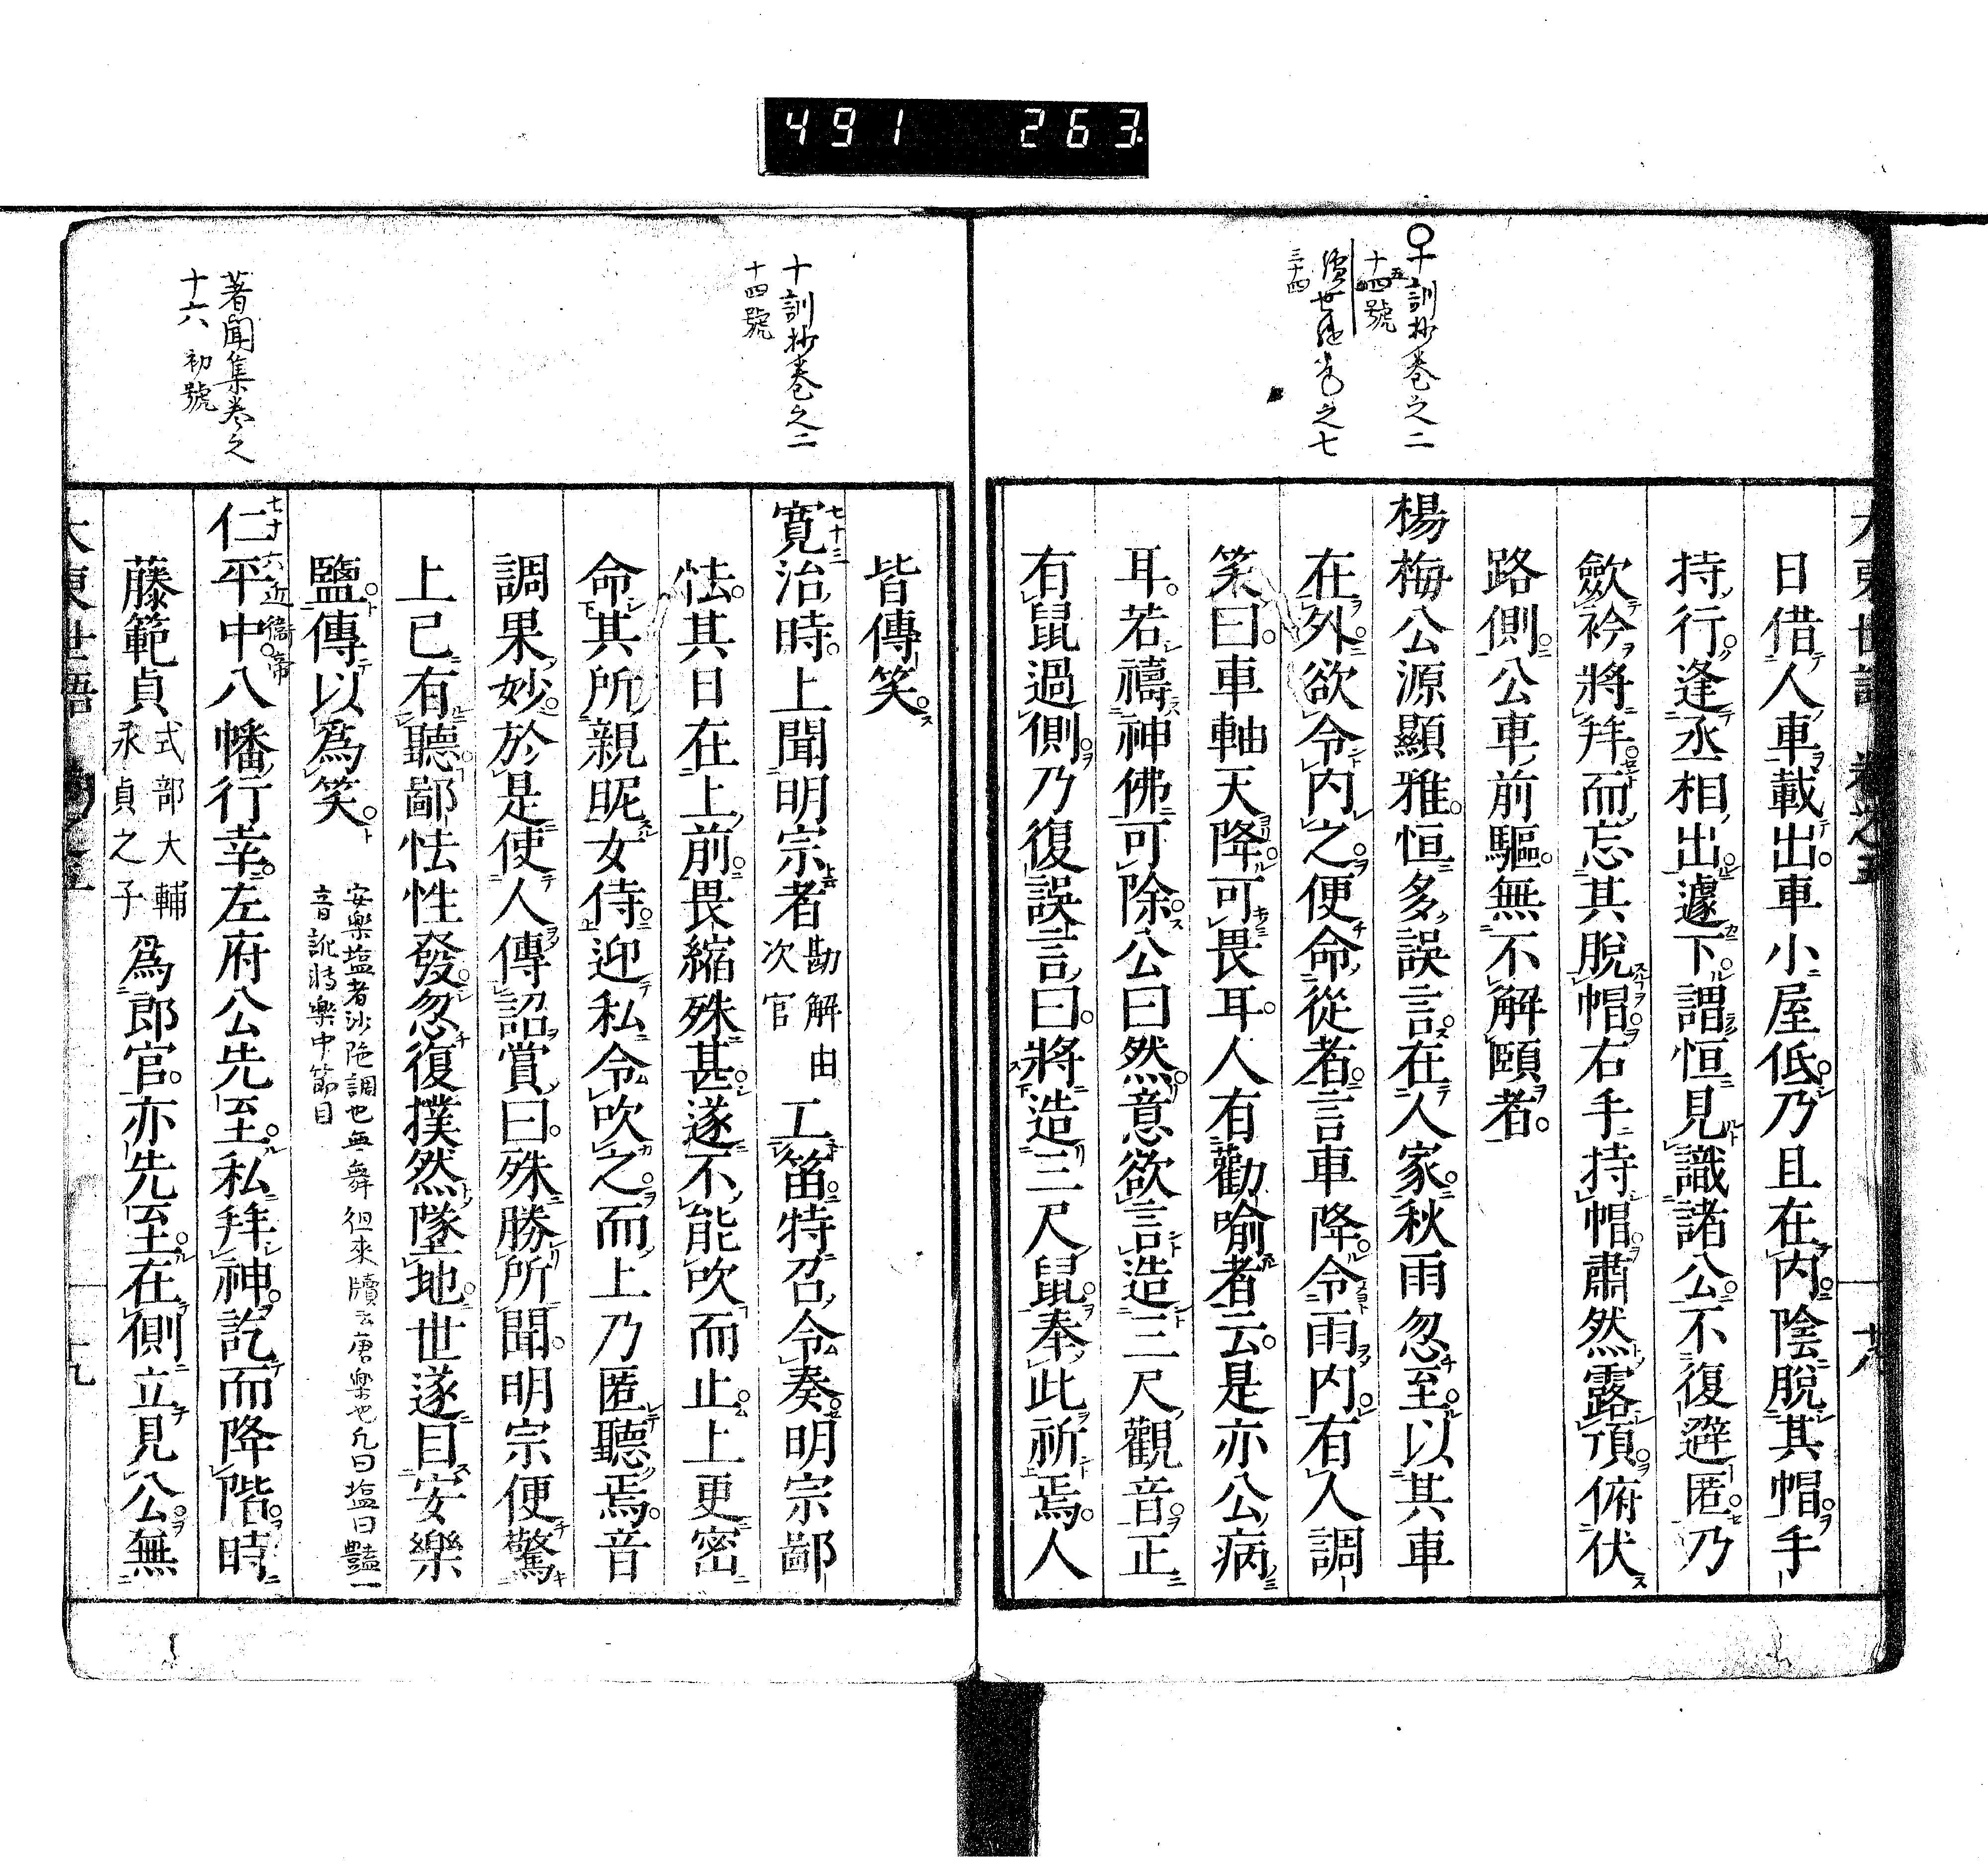 491 263
十訓抄卷之二
十五號
續世繼卷之七
三十四
大東世語 卷之五
日借人車載出車小屋低乃且在内陰脱其帽手
持行逢丞相出遽下謂恒見識諸公不復避匿乃
歛衿將拜而忘其脱帽右手持帽肅然露頂俯伏
路側公車前驅無不解頤者
楊梅公源顯雅恒多誤言在人家秋雨忽至以其車
在外欲令内之便命從者言車降令雨内有人調
笑曰車軸天降可畏耳人有勸喻者云是亦公病
耳若禱神佛可除公曰然意欲言造三尺觀音正
有鼠過側乃復誤言曰將造三尺鼠奉此祈焉人
十訓抄卷之二
十四號
著聞集卷之
十六 初號
皆傳笑
七十三
寛治時上聞明宗者勘解由次官工笛特召令奏明宗鄙
怯其日在上前畏縮殊甚遂不能吹而止上更密
命其所親昵女侍迎私令吹之而上乃匿聽焉音
調果妙於是使人傳詔賞曰殊勝所聞明宗便驚
上已有聽鄙怯性發忽復撲然墜地世遂目安樂
鹽傳以爲笑
安樂塩者沙陁調也無舞徂來牘云唐樂也凡曰塩曰豔一
音訛將樂中節目
七十六 近衞帝
仁平中八幡行幸左府公先至私拜神訖而降階時
藤範貞式部大輔永貞之子爲郎官亦先至在側立見公無
大東世語
十九